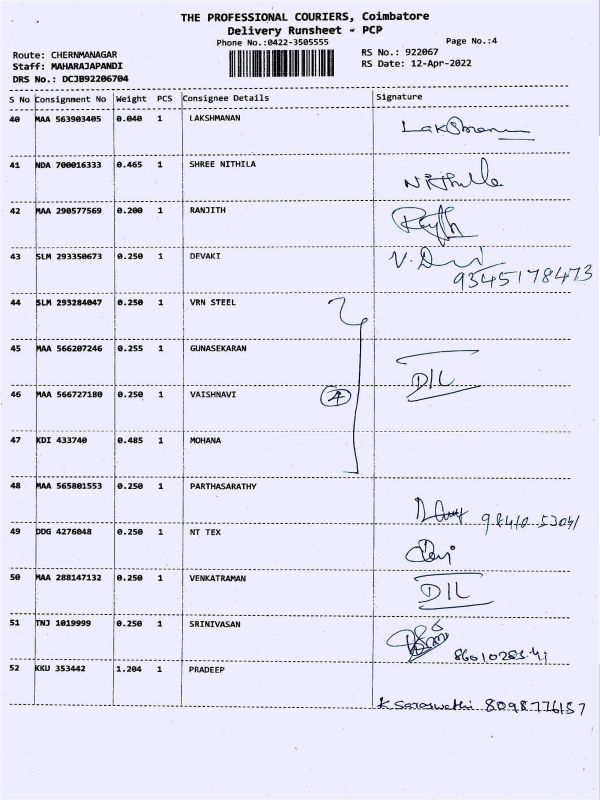 THE PROFESSIONAL COURIERS, Coimbatore
Delivery Runsheet - PCP
Phone No.:0422-3505555 Page No.:4
Route: CHERNMANAGAR RS No.: 922067
Staff: MAHARAJAPANDI RS Date: 12-Apr-2022
DRS No.: DCJB92206704
S No Consignment No Weight PCS Consignee Details Signature
40 MAA 563903405 0.040 1 LAKSHMANAN
41 NDA 700016333 0.465 1 SHREE NITHILA
42 MAA 290577569 0.200 1 RANJITH
43 SLM 293350673 0.250 1 DEVAKI
9345178473
44 SLM 293284047 0.250 1 VRN STEEL
45 MAA 566207246 0.255 1 GUNASEKARAN
D/L
46 MAA 566727180 0.250 1 VAISHNAVI 4
47 KDI 433740 0.485 1 MOHANA
48 MAA 565801553 0.250 1 PARTHASARATHY
98410 53041
49 DDG 4276048 0.250 1 NT TEX
50 MAA 288147132 0.250 1 VENKATRAMAN D/L
51 TNJ 1019999 0.250 1 SRINIVASAN
52 KKU 353442 1.204 1 PRADEEP
K Saraswathi 8098776157